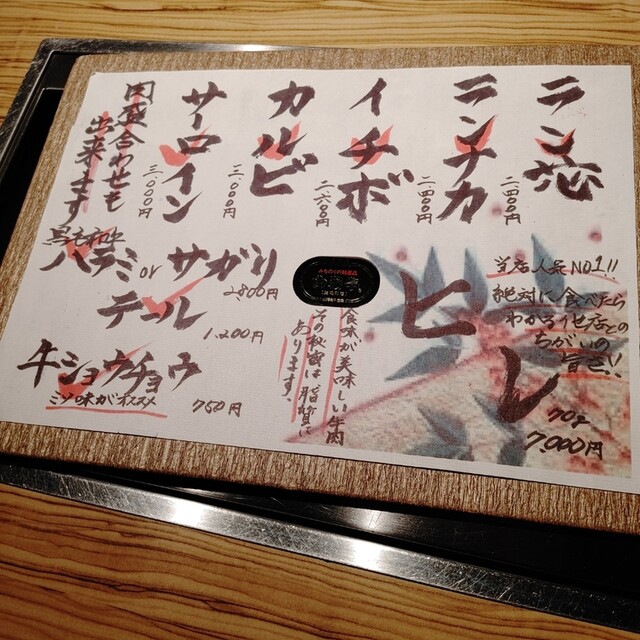 ラン芯
二、四〇〇円
ランナカ
二、四〇〇円
イチボ
二、六〇〇円
カルビ
三、〇〇〇円
サーロイン
三、〇〇〇円
肉盛合わせも
出来ます
黒毛和牛
ハラミ or サガリ
2,800円
テール
1,200円
牛ショウチョウ
ミソ味がオススメ
750円
当店人気NO1!!
絶対に食べたら
わかる他店との
ちがいの
旨さ!!
ヒレ
70g
7,000円
味が美味しい牛肉
その秘密は脂質に
あります。